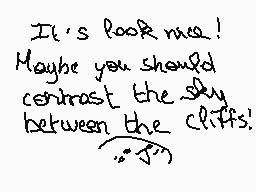 It's look nice!
Maybe you should
contrast the sky
between the cliffs!